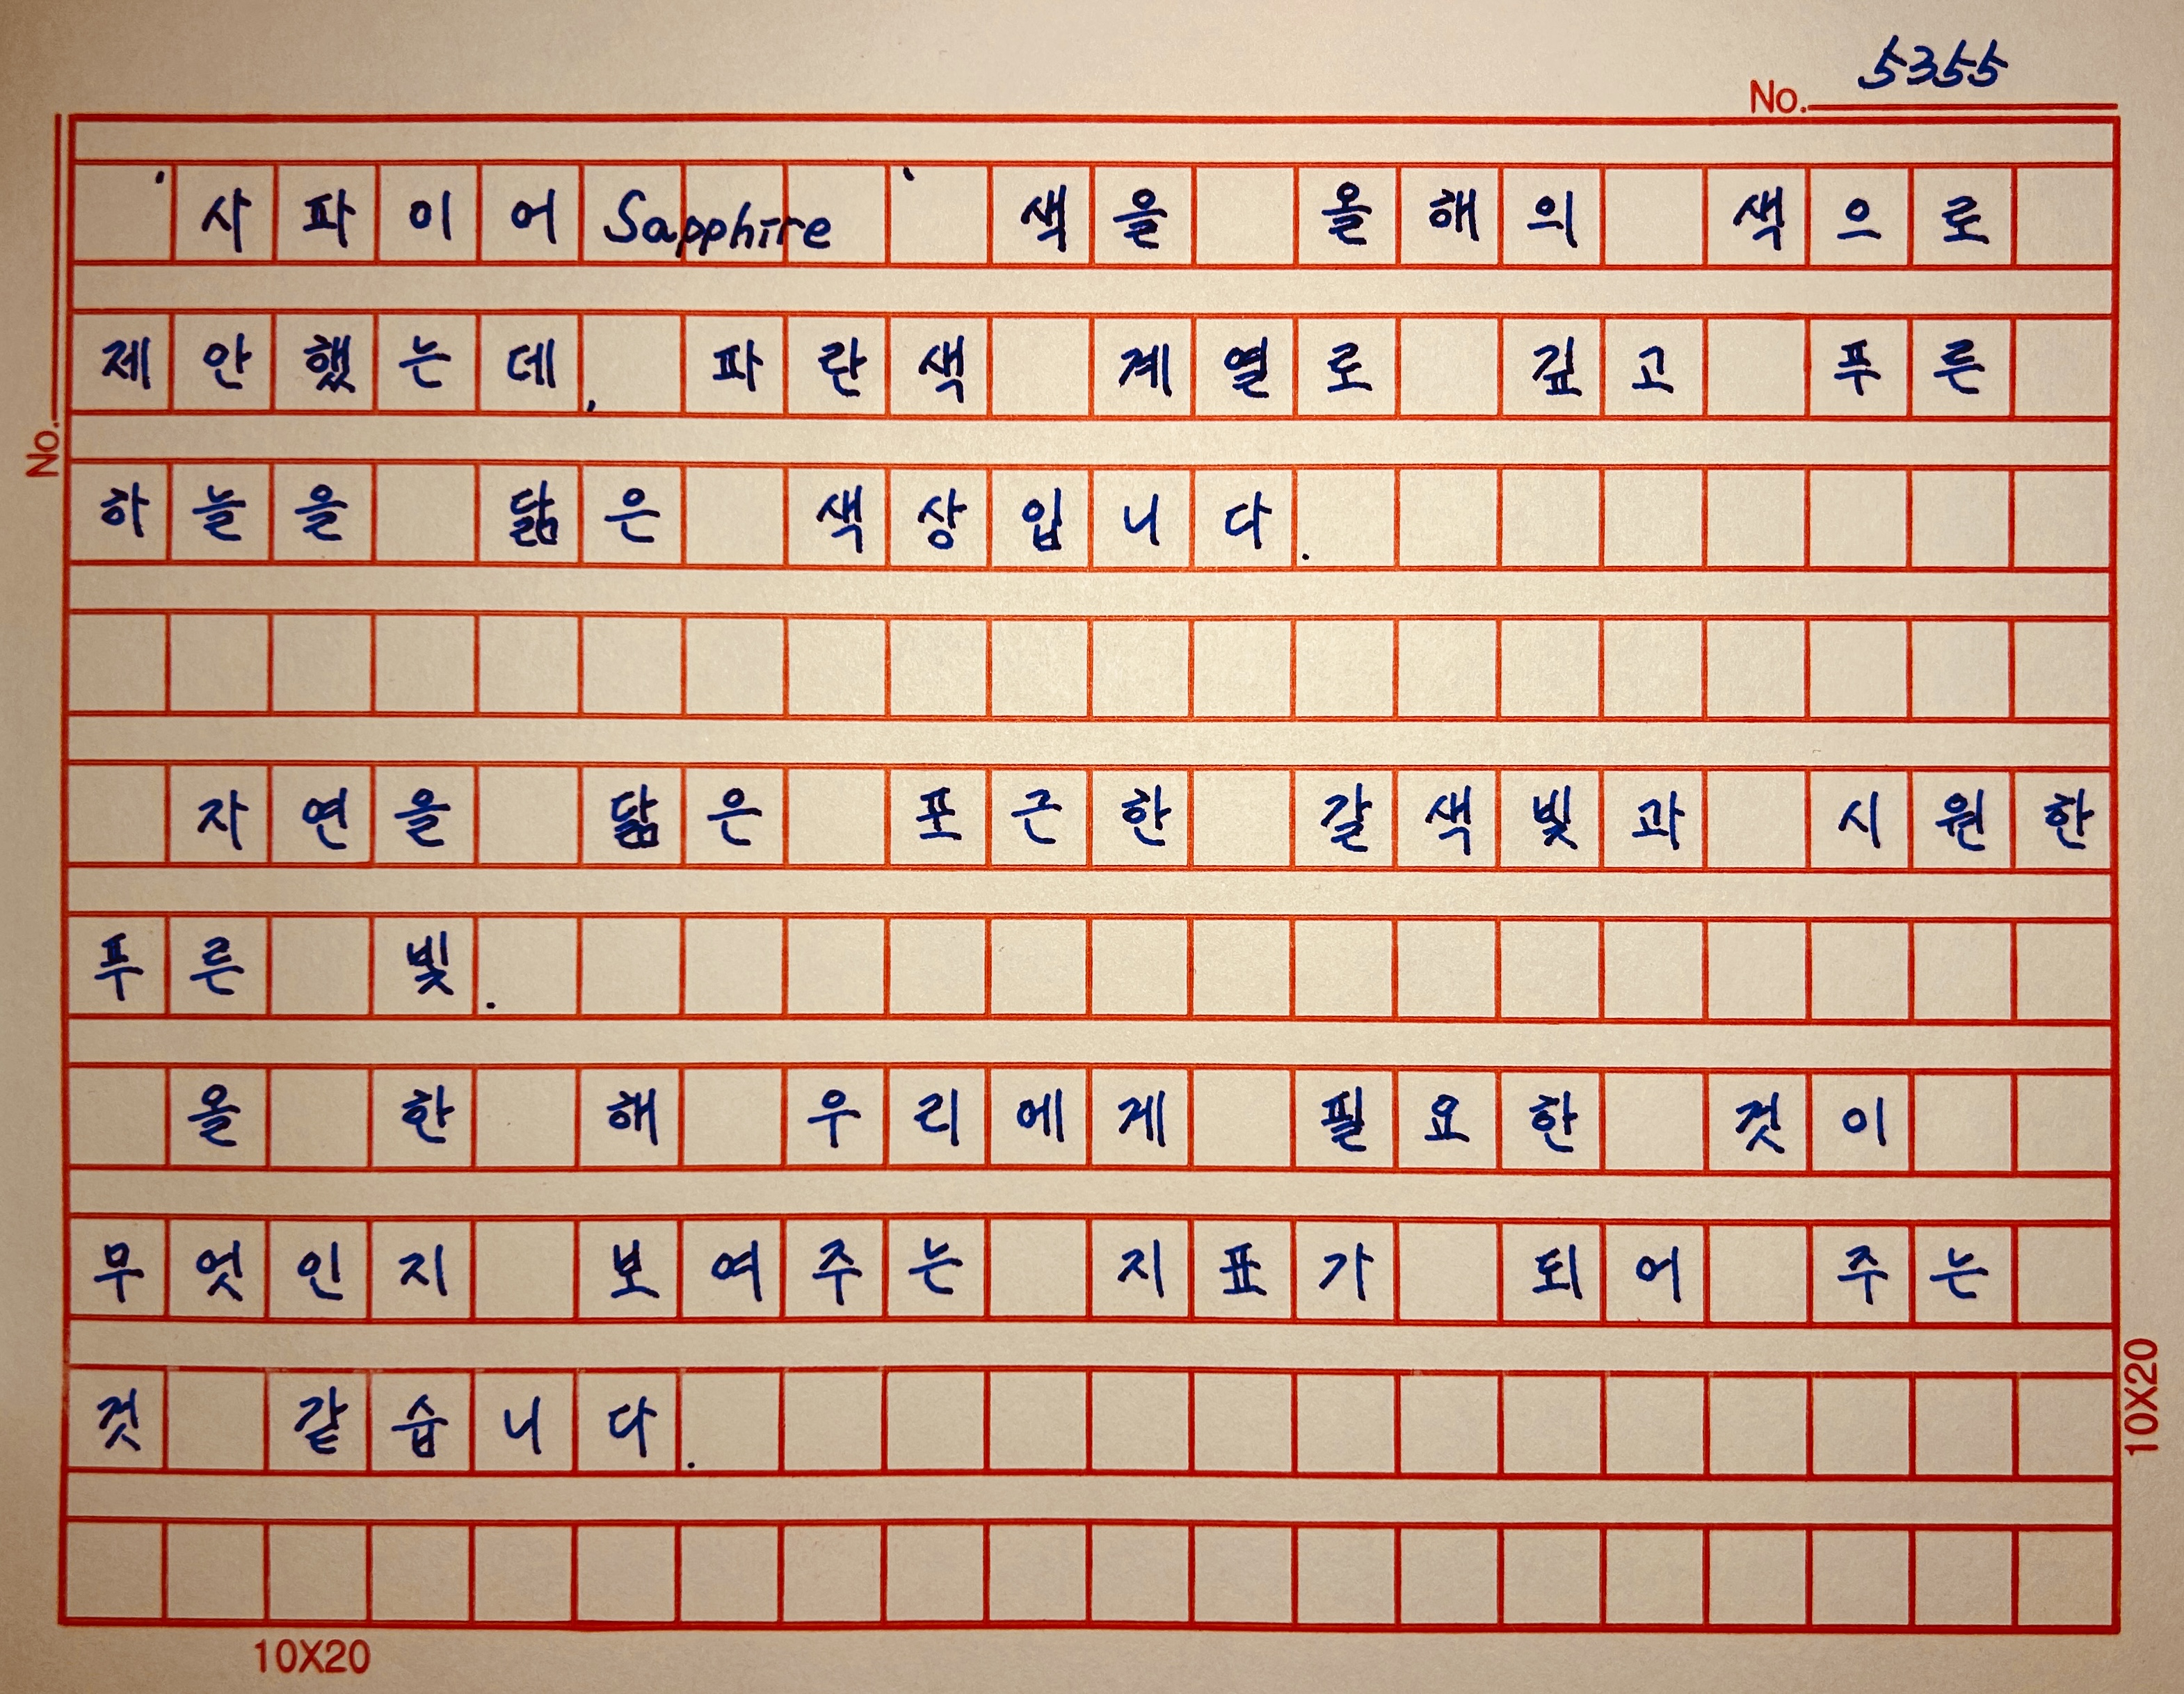 5355
No.
'사파이어Sapphire' 색을 올해의 색으로
제안했는데, 파란색 계열로 깊고 푸른
No.
하늘을 닮은 색상입니다.
자연을 닮은 포근한 갈색빛과 시원한
푸른 빛.
올 한 해 우리에게 필요한 것이
무엇인지 보여주는 지표가 되어 주는
것 같습니다.
10X20
10X20